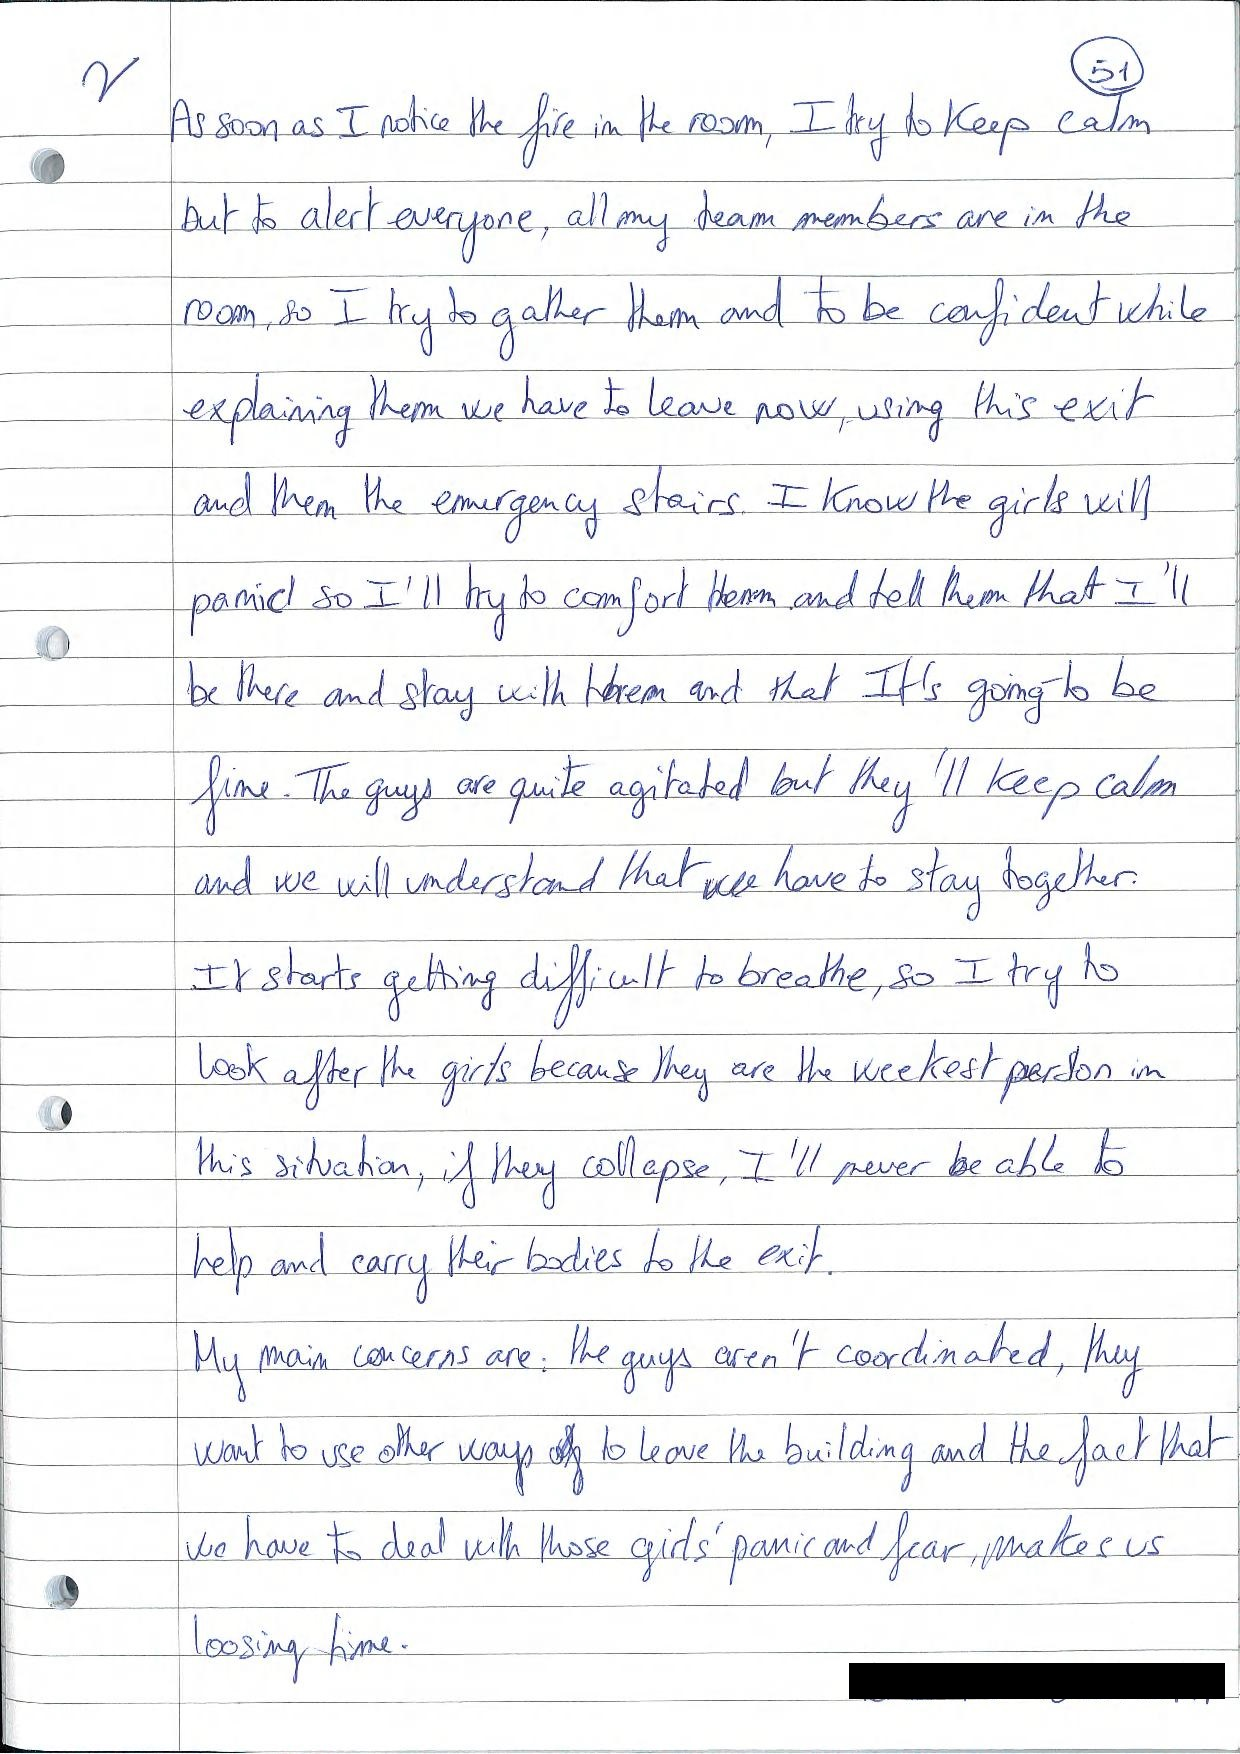 2
51
As soon as I notice the fire in the room, I try to keep calm
but to alert everyone, all my team members are in the
room, so I try to gather them and to be confident while
explaining them we have to leave now, using this exit
and them the emergency stairs. I know the girls will
panic so I'll try to comfort them and tell them that I'll
be there and stay with them and that It's going to be
fine. The guys are quite agitated but they'll keep calm
and we will understand that we have to stay together.
It starts getting difficult to breathe, so I try to
look after the girls because they are the weekest person in
this situation, if they collapse, I'll never be able to
help and carry their bodies to the exit.
My main concerns are: the guys aren't coordinated, they
want to use other ways to leave the building and the fact that
we have to deal with those girls' panic and fear, makes us
loosing time.